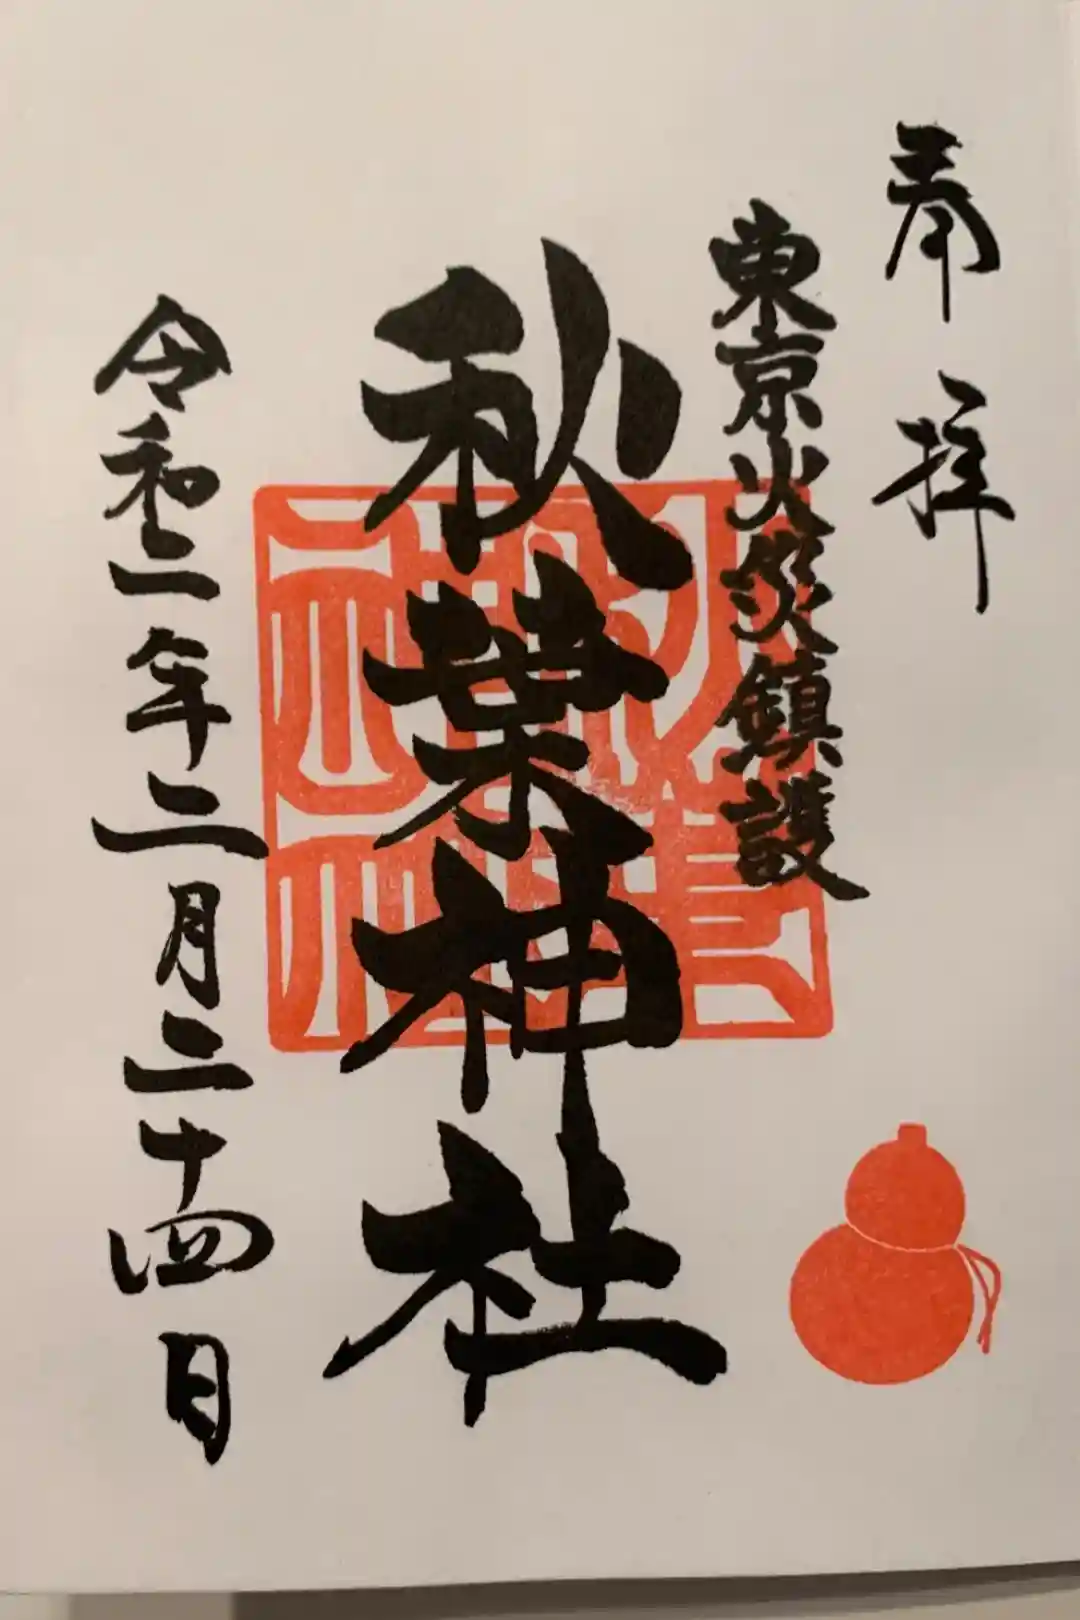 奉拝
東京火災鎮護
秋葉神社
令和二年二月二十四日